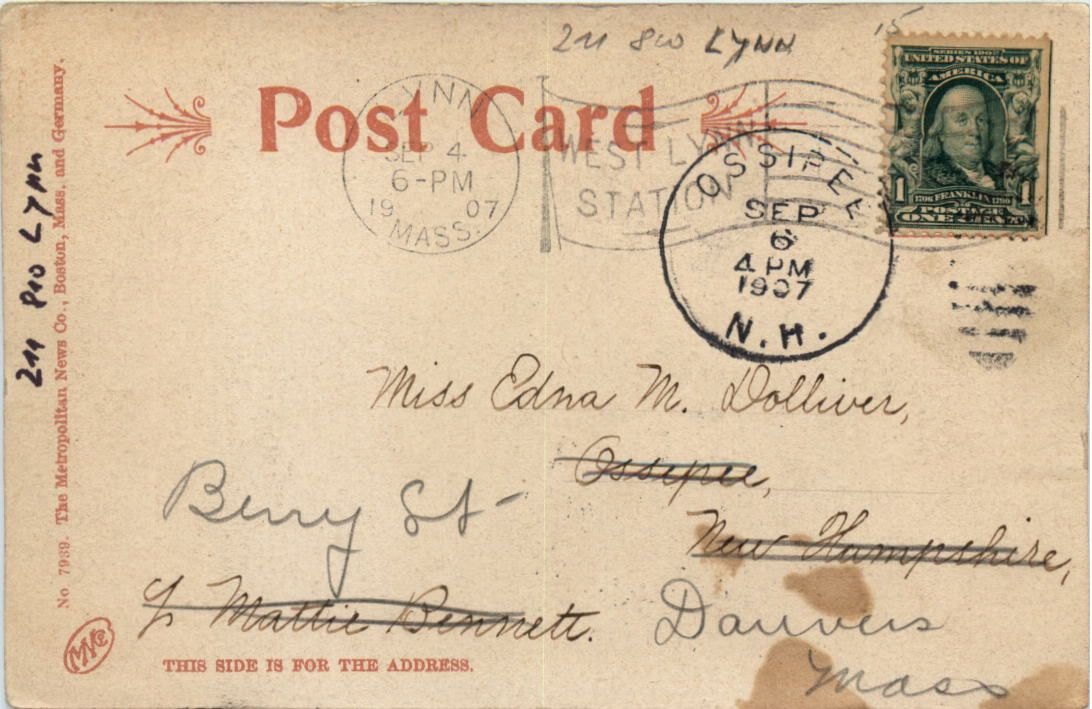 211 810 LYNN 15
Post Card
LYNN
SEP 4
6-PM
19 07
MASS.
WEST LYNN
STATION
OSSIPEE
SEP
6
4 PM
1907
N.H.
SERIES 1902
UNITED STATES OF
AMERICA
1 1
1706 FRANKLIN 1790
POSTAGE
ONE CENT
Miss Edna M. Dolliver,
Ossipee,
New Hampshire,
℅ Mattie Bennett.
Berry St-
Danvers
Mass
THIS SIDE IS FOR THE ADDRESS.
No 7939. The Metropolitan News Co., Boston, Mass. and Germany.
211 810 LYNN